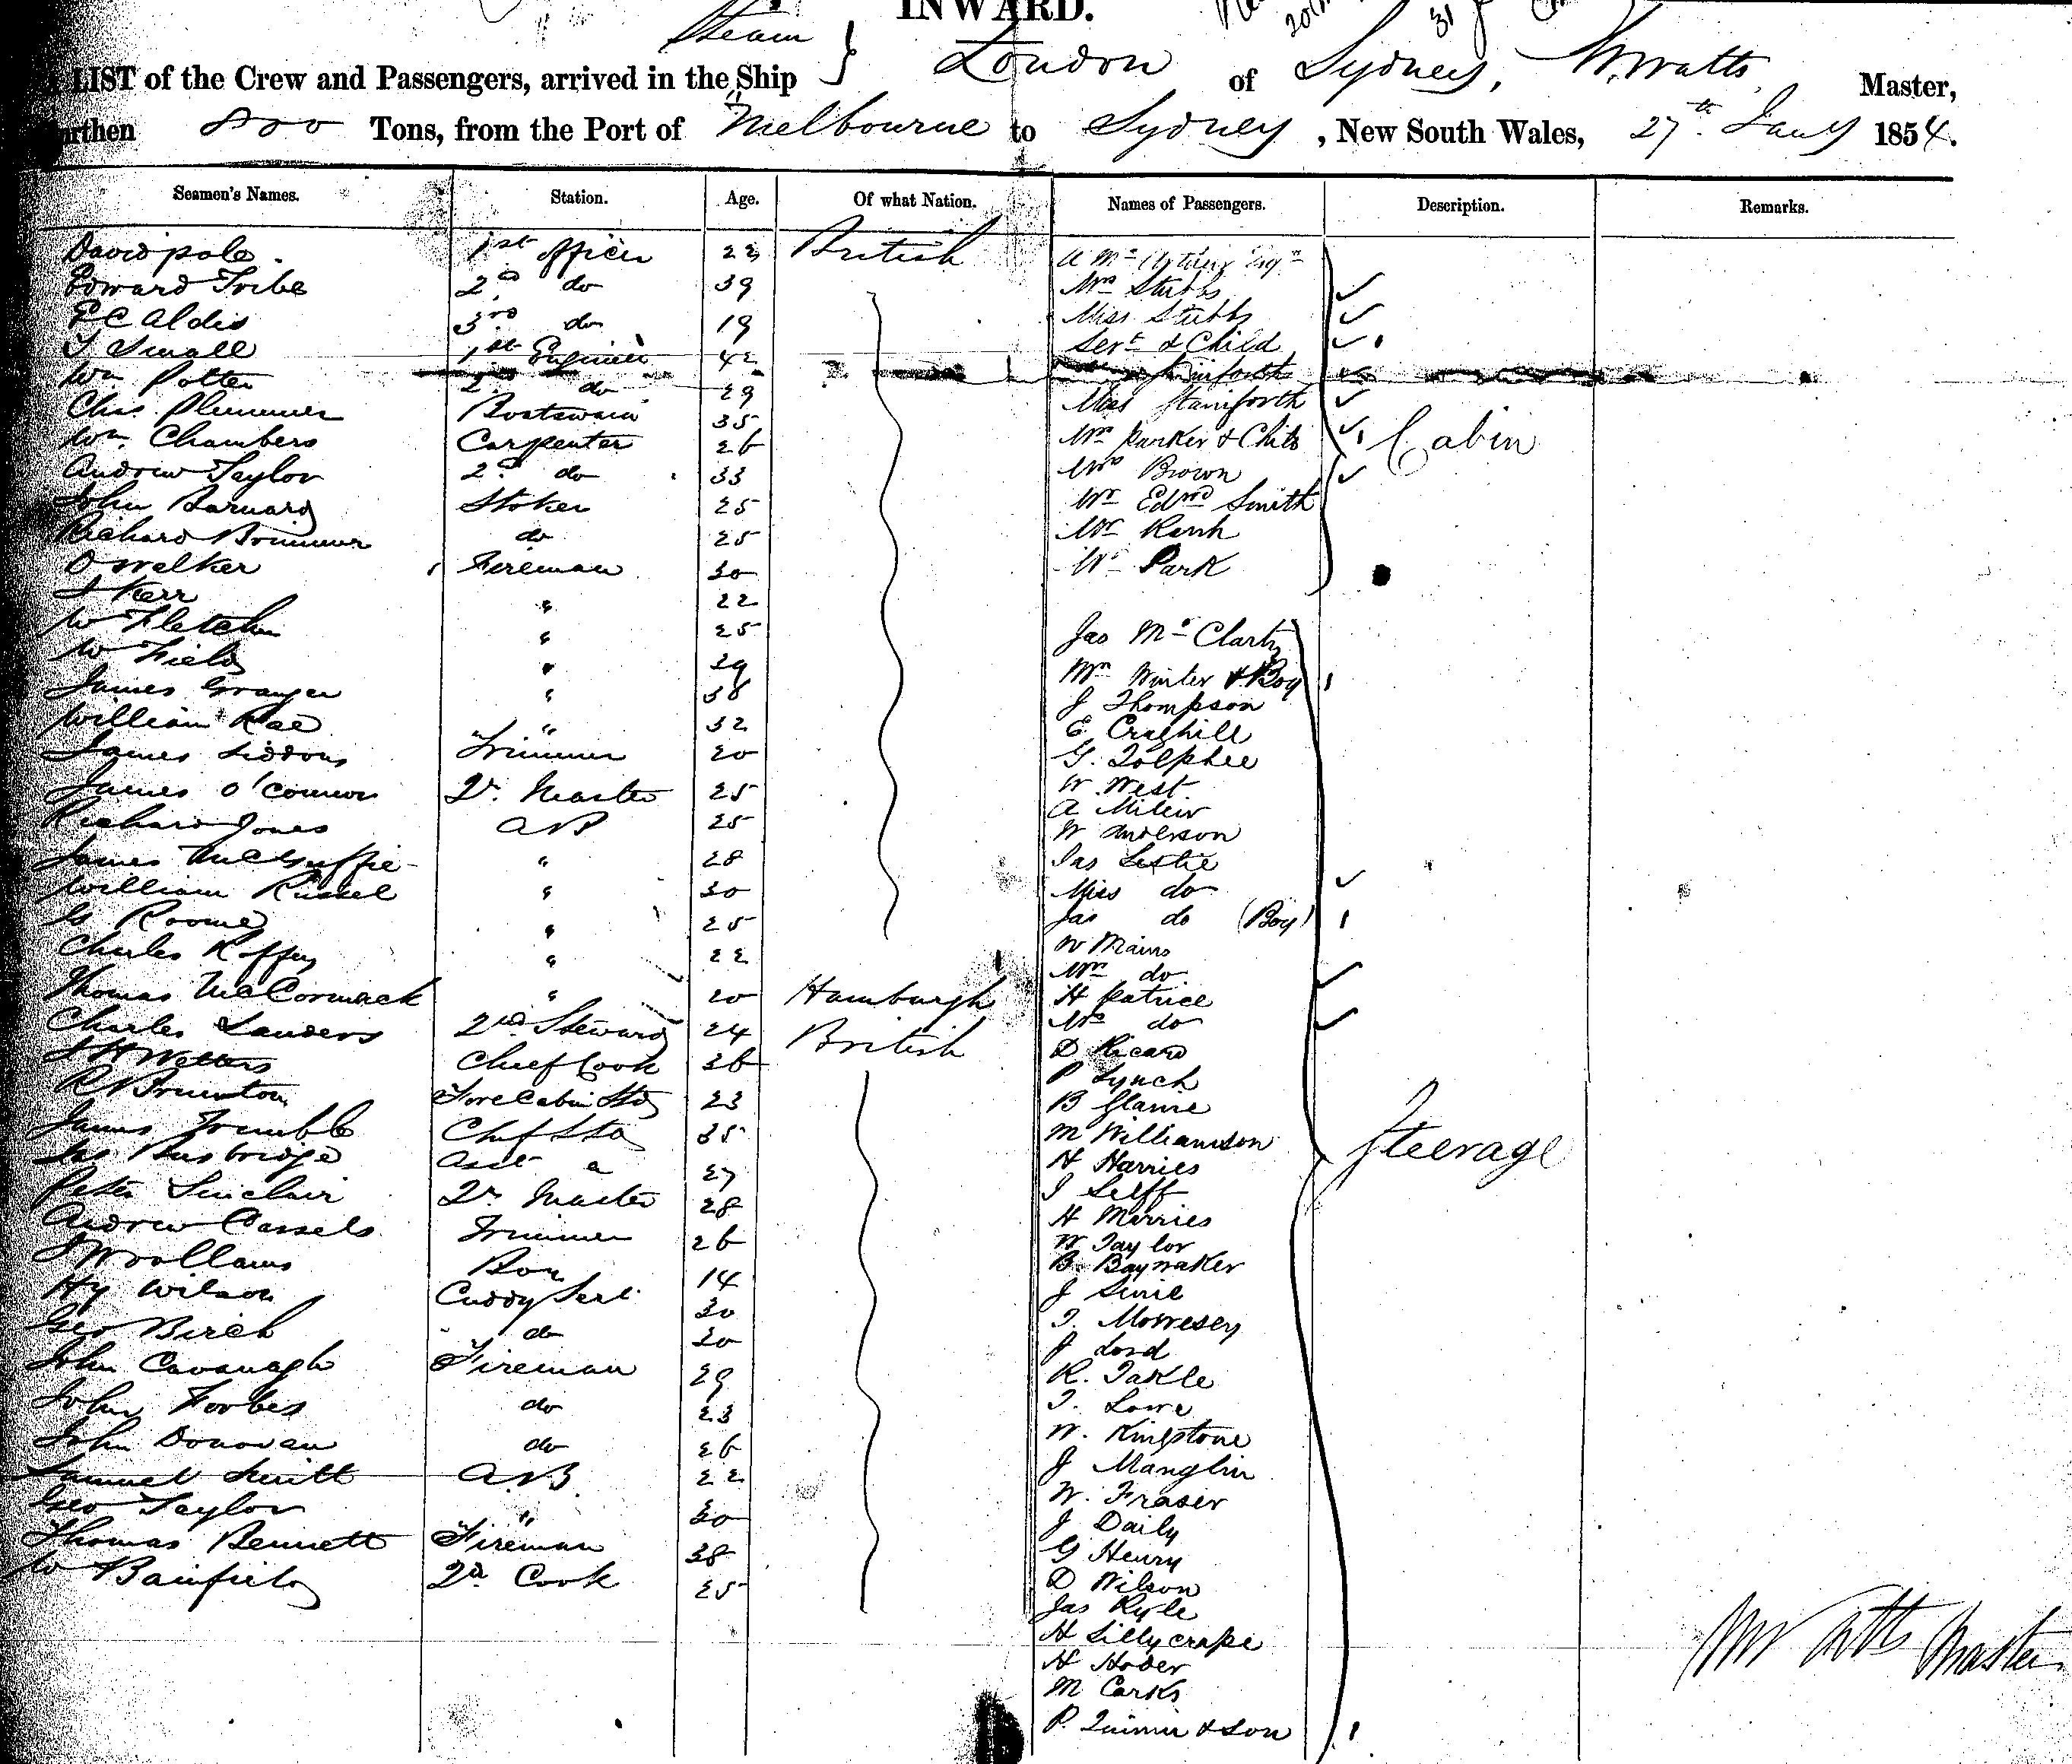 INWARD.
Steam
LIST of the Crew and Passengers, arrived in the Ship } London of Sydney, W Watts Master,
Burthen 800 Tons, from the Port of Melbourne to Sydney, New South Wales, 27th Jany 1854.
Seamen's Names. Station. Age. Of what Nation. Names of Passengers. Description. Remarks.
David pole 1st officer 22 British
Edward Tribe 2nd do 39 Mrs Stubbs
E C Aldis 3rd do 19 Miss Stubbs
J Small 1st Engineer 42 Servt & Child
Wm Potter 2nd do 29 Staniforth
Chas Plummer Boatswain 35 Miss Staniforth
Wm Chambers Carpenter 26 Mrs Parker & Child Cabin
Andrew Taylor 2d do 33 Mrs Brown
John Barnard Stoker 25 Mr Edwd Smith
Richard Brimmer do 25 Mr
O Walker Fireman 30 Mr Park
J Kerr " 22
W Fletcher " 25 Jas Mc Clarty
W Field " 29 Mrs Winter & Boy
James Granger " 38 J Thompson
William Rae " 32 E Craghill
James Siddons Trimmer 20 G. Dolphee
James O'Connor Qr. Master 25 W. West
Richard Jones AB 25 A
James McGuffie " 28 W Anderson
William Russel " 30 Jas Leslie
G Roome " 25 Miss do
Charles " 22 Jas do (Boy)
Thomas McCormack " 20 Hamburgh W Mains
Charles Sanders 2nd Steward 24 British Mrs do
J H Watters Chief Cook 36 H Patrice
R Brunton Fore Cabin Std 23 Mrs do
James Trumble Chief Std 35 D Ricard
Jas Busbridge Asst " 27 P Lynch
Peter Sinclair Qr Master 28 B Glanie
Andrew Cassels Trimmer 26 M Williamson Steerage
J Woollams Boy 14 H Harries
Hy Wilson Cuddy Sert 30 J Selff
Geo Birch do 20 H Marries
John Cavanagh Fireman 29 W Taylor
John Forbes do 23 B. Baynaker
John Donovan do 26 J
Samuel Smith A.B. 22 T. Morresey
Geo Taylor " 30 J Lord
Thomas Bennett Fireman 38 R. Takle
W Bainfield 2d Cook 25 T. Lowe
W. Kingstone
J Manglin
W. Fraser
J Daily
G Henry
D Wilson
Jas Kyle
H Lillycrape
H Hoder
M Carks
P. Quinn & Son
W Watts Master